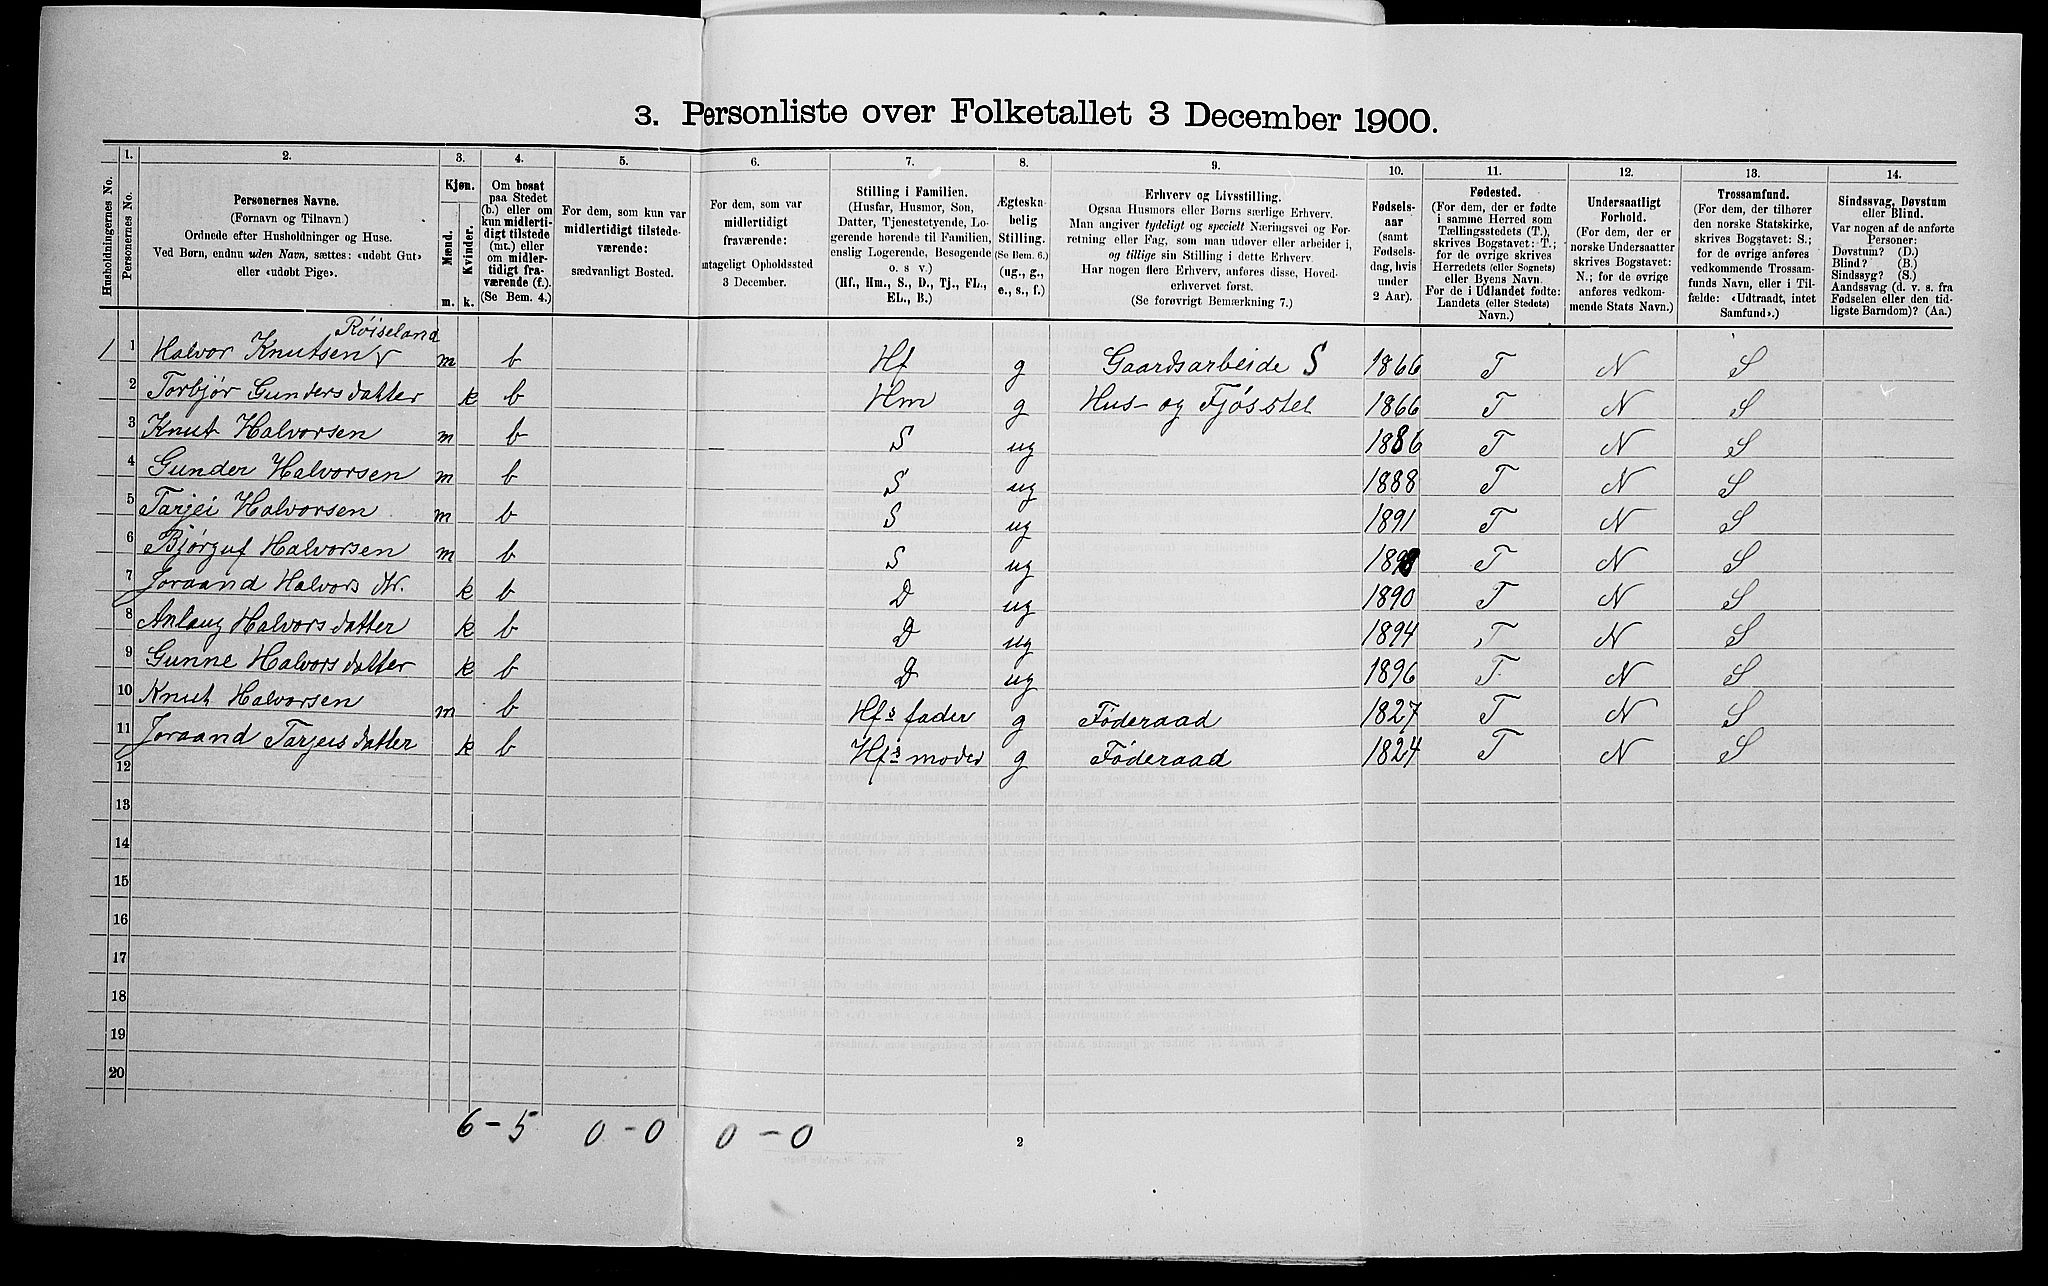 3. Personliste over Folketallet 3 December 1900.
1. 2. 3. 4. 5. 6. 7. 8. 9. 10. 11. 12. 13. 14.
Husholdningernes No.
Personernes No.
Personernes Navne.
(Fornavn og Tilnavn.)
Ordnede efter Husholdninger og Huse.
Ved Børn, endnu uden Navn, sættes: «udøbt Gut»
eller «udøbt Pige».
Kjøn.
Mænd.
Kvinder.
m. k.
Om bosat
paa Stedet
(b.) eller om
kun midlerti-
digt tilstede
(mt.) eller
om midler-
tidigt fra-
værende (f.).
(Se Bem. 4.)
For dem, som kun var
midlertidigt tilstede-
værende:
sædvanligt Bosted.
For dem, som var
midlertidigt
fraværende:
antageligt Opholdssted
3 December.
Stilling i Familien.
(Husfar, Husmor, Søn,
Datter, Tjenestetyende, Lo-
gerende hørende til Familien,
enslig Logerende, Besøgende
o. s v.)
(Hf., Hm., S., D., Tj., FL.,
EL., B.)
Ægteska-
belig
Stilling.
(Se Bem. 6.)
(ug., g.,
e., s., f.)
Erhverv og Livsstilling.
Ogsaa Husmors eller Børns særlige Erhverv.
Man angiver tydeligt og specielt Næringsvei og For-
retning eller Fag, som man udøver eller arbeider i,
og tillige sin Stilling i dette Erhverv.
Har nogen flere Erhverv, anføres disse, Hoved-
erhvervet først.
(Se forøvrigt Bemærkning 7.)
Fødsels-
aar
(samt
Fødsels-
dag, hvis
under
2 Aar).
Fødested.
(For dem, der er fødte
i samme Herred som
Tællingsstedets (T.),
skrives Bogstavet: T.;
for de øvrige skrives
Herredets (eller Sognets)
eller Byens Navn.
For de i Udlandet fødte:
Landets (eller Stedets)
Navn.)
Undersaatligt
Forhold.
(For dem, der er
norske Undersaatter
skrives Bogstavet:
N.; for de øvrige
anføres vedkom-
mende Stats Navn.)
Trossamfund.
(For dem, der tilhører
den norske Statskirke,
skrives Bogstavet: S.;
for de øvrige anføres
vedkommende Trossam-
funds Navn, eller i Til-
fælde: «Udtraadt, intet
Samfund».)
Sindssvag, Døvstum
eller Blind.
Var nogen af de anførte
Personer:
Døvstum? (D.)
Blind? (B.)
Sindssyg? (S.)
Aandssvag (d. v. s. fra
Fødselen eller den tid-
ligste Barndom)? (Aa.)
Röiseland
1 1 Halvor Knutsen m b Hf g Gaardsarbeide S 1866 T N S
2 Torbjør Gundersdatter k b Hm g Hus- og Fjøsstel 1866 T N S
3 Knut Halvorsen m b S ug 1886 T N S
4 Gunder Halvorsen m b S ug 1888 T N S
5 Tarjei Halvorsen m b S ug 1891 T N S
6 Bjørguf Halvorsen m b S ug T N S
7 Joraand Halvors dtr. k b D ug 1890 T N S
8 Anlaug Halvorsdatter k b D ug 1894 T N S
9 Gunne Halvorsdatter k b D ug 1896 T N S
10 Knut Halvorsen m b Hfs fader g Føderaad 1827 T N S
11 Joraand Tarjeisdatter k b Hfs moder g Føderaad 1824 T N S
12
13
14
15
16
17
18
19
20
6 - 5 0 - 0 0 - 0
2